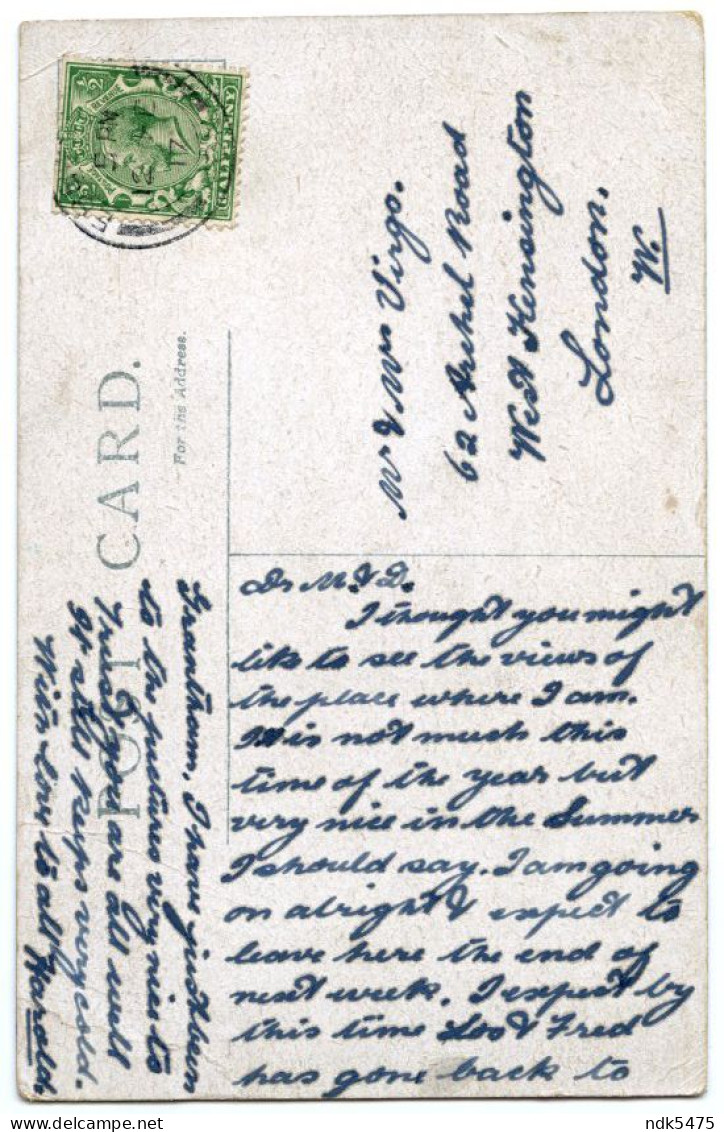 POST CARD.
For the Address.
HALFPENNY
POSTAGE
REVENUE
½
5 PM
12
17
Mr & Mrs Virgo.
62 Archel Road
West Kensington
London.
W.
Dr M. & D.
I thought you might
like to see the views of
the place where I am.
It is not much this
time of the year but
very nice in the Summer
I should say. I am going
on alright & expect to
leave here the end of
next week. I expect by
this time Los & Fred
has gone back to
Grantham. I have just been
to the pictures very nice to
Trust you are all well
It still keeps very cold.
With love to all Harold
ndk5475